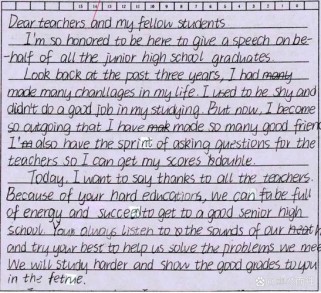 Dear teachers and my fellow students
I'm so honored to be here to give a speech on be-
half of all the junior high school graduates.
Look back at the past three years, I had many
made many chanllages in my life. I used to be shy and
didn't do a good job in my studying. But now, I become
so outgoing that I have mak made so many good frien
I'm also have the sprint of asking questions for the
teachers so I can get my scores bdauble.
Today, I want to say thanks to all the teachers.
Because of your hard educations, we can to be full
of energy and succeed to get to a good senior high
school. Your always listen to the sounds of our heat h
and try your best to help us solve the problems we mee
We will study harder and show the good grades to you
in the fetrue.